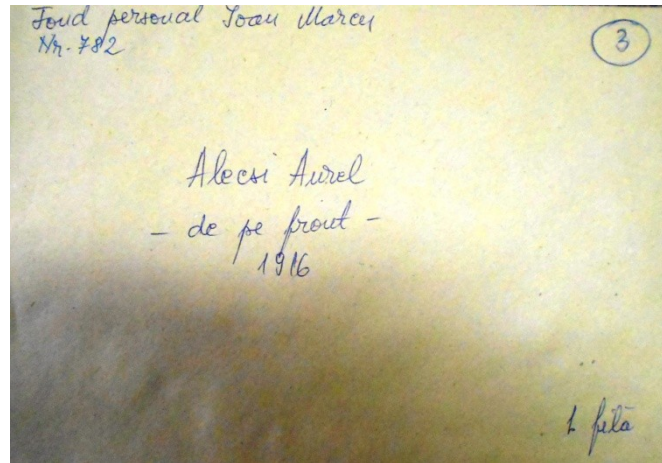 Fond personal Ioan Marcu
Nr. 782
3
Alecsi Aurel
- de pe front -
1916
1 filă